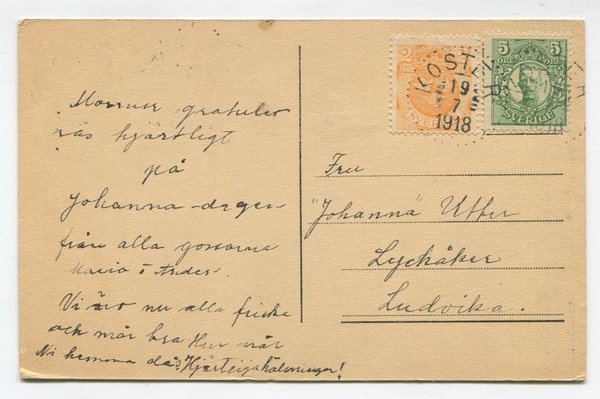 Mamma gratule-
ras hjärtligt
på
Johanna-dagen
från alla gossarna
Maria o Andes.
Vi äro nu alla friska
och mår bra Hur mår
Ni hemma då? Hjärtliga hälsningar!
KOST
19
7
1918
2
5 5
ÖRE ÖRE
SVERIGE
Fru
"Johanna"
Lychåker
Ludvika.